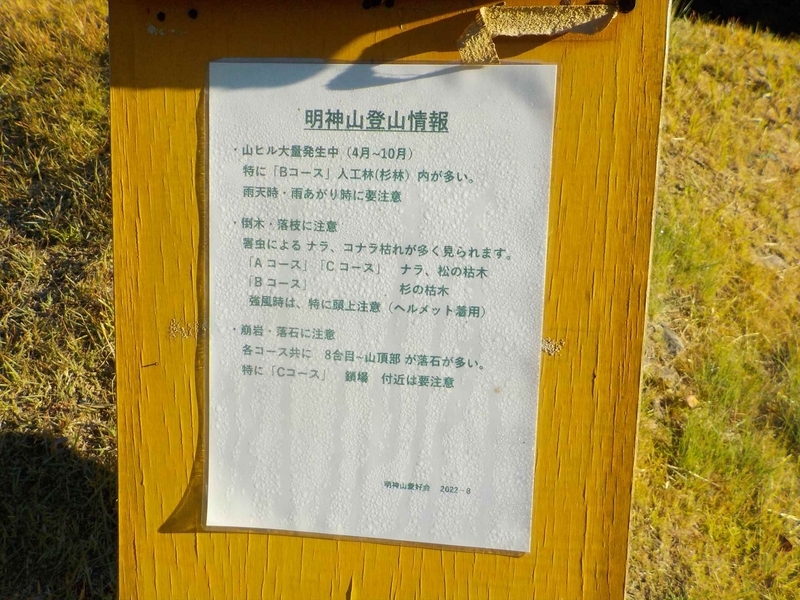 明神山登山情報
・山ヒル大量発生中（4月~10月）
特に「Bコース」人工林(杉林）内が多い。
雨天時・雨あがり時に要注意
・倒木・落枝に注意
害虫による ナラ、コナラ枯れが多く見られます。
「A コース」「C コース」 ナラ、松の枯木
「B コース」 杉の枯木
強風時は、特に頭上注意（ヘルメット着用）
・崩岩・落石に注意
各コース共に 8合目~山頂部 が落石が多い。
特に「Cコース」 鎖場 付近は要注意
明神山愛好会 2022－8